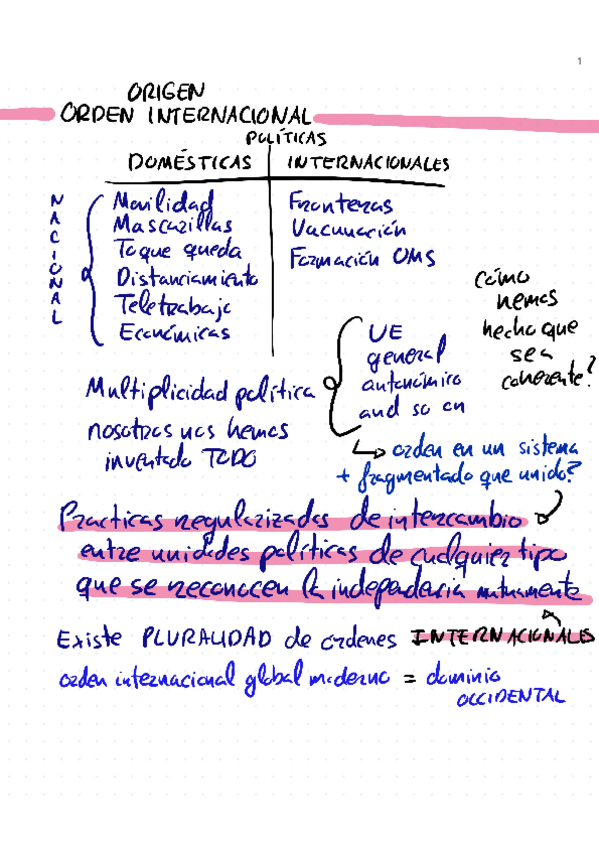 1
ORIGEN
ORDEN INTERNACIONAL
POLÍTICAS
DOMÉSTICAS INTERNACIONALES
NACIONAL
Movilidad
Mascarillas
Toque queda
Distanciamiento
Teletrabajo
Económicas
Fronteras
Vacunación
Formación OMS
cómo
hemos
hecho que
sea
coherente?
Multiplicidad política
UE
general
autonómico
and so on
nosotros nos hemos
inventado TODO
orden en un sistema
+ fragmentado que unido?
Practicas regularizadas de intercambio
entre unidades políticas de cualquier tipo
que se reconocen la independencia mutuamente
Existe PLURALIDAD de órdenes INTERNACIONALES
orden internacional global moderno = dominio
OCCIDENTAL